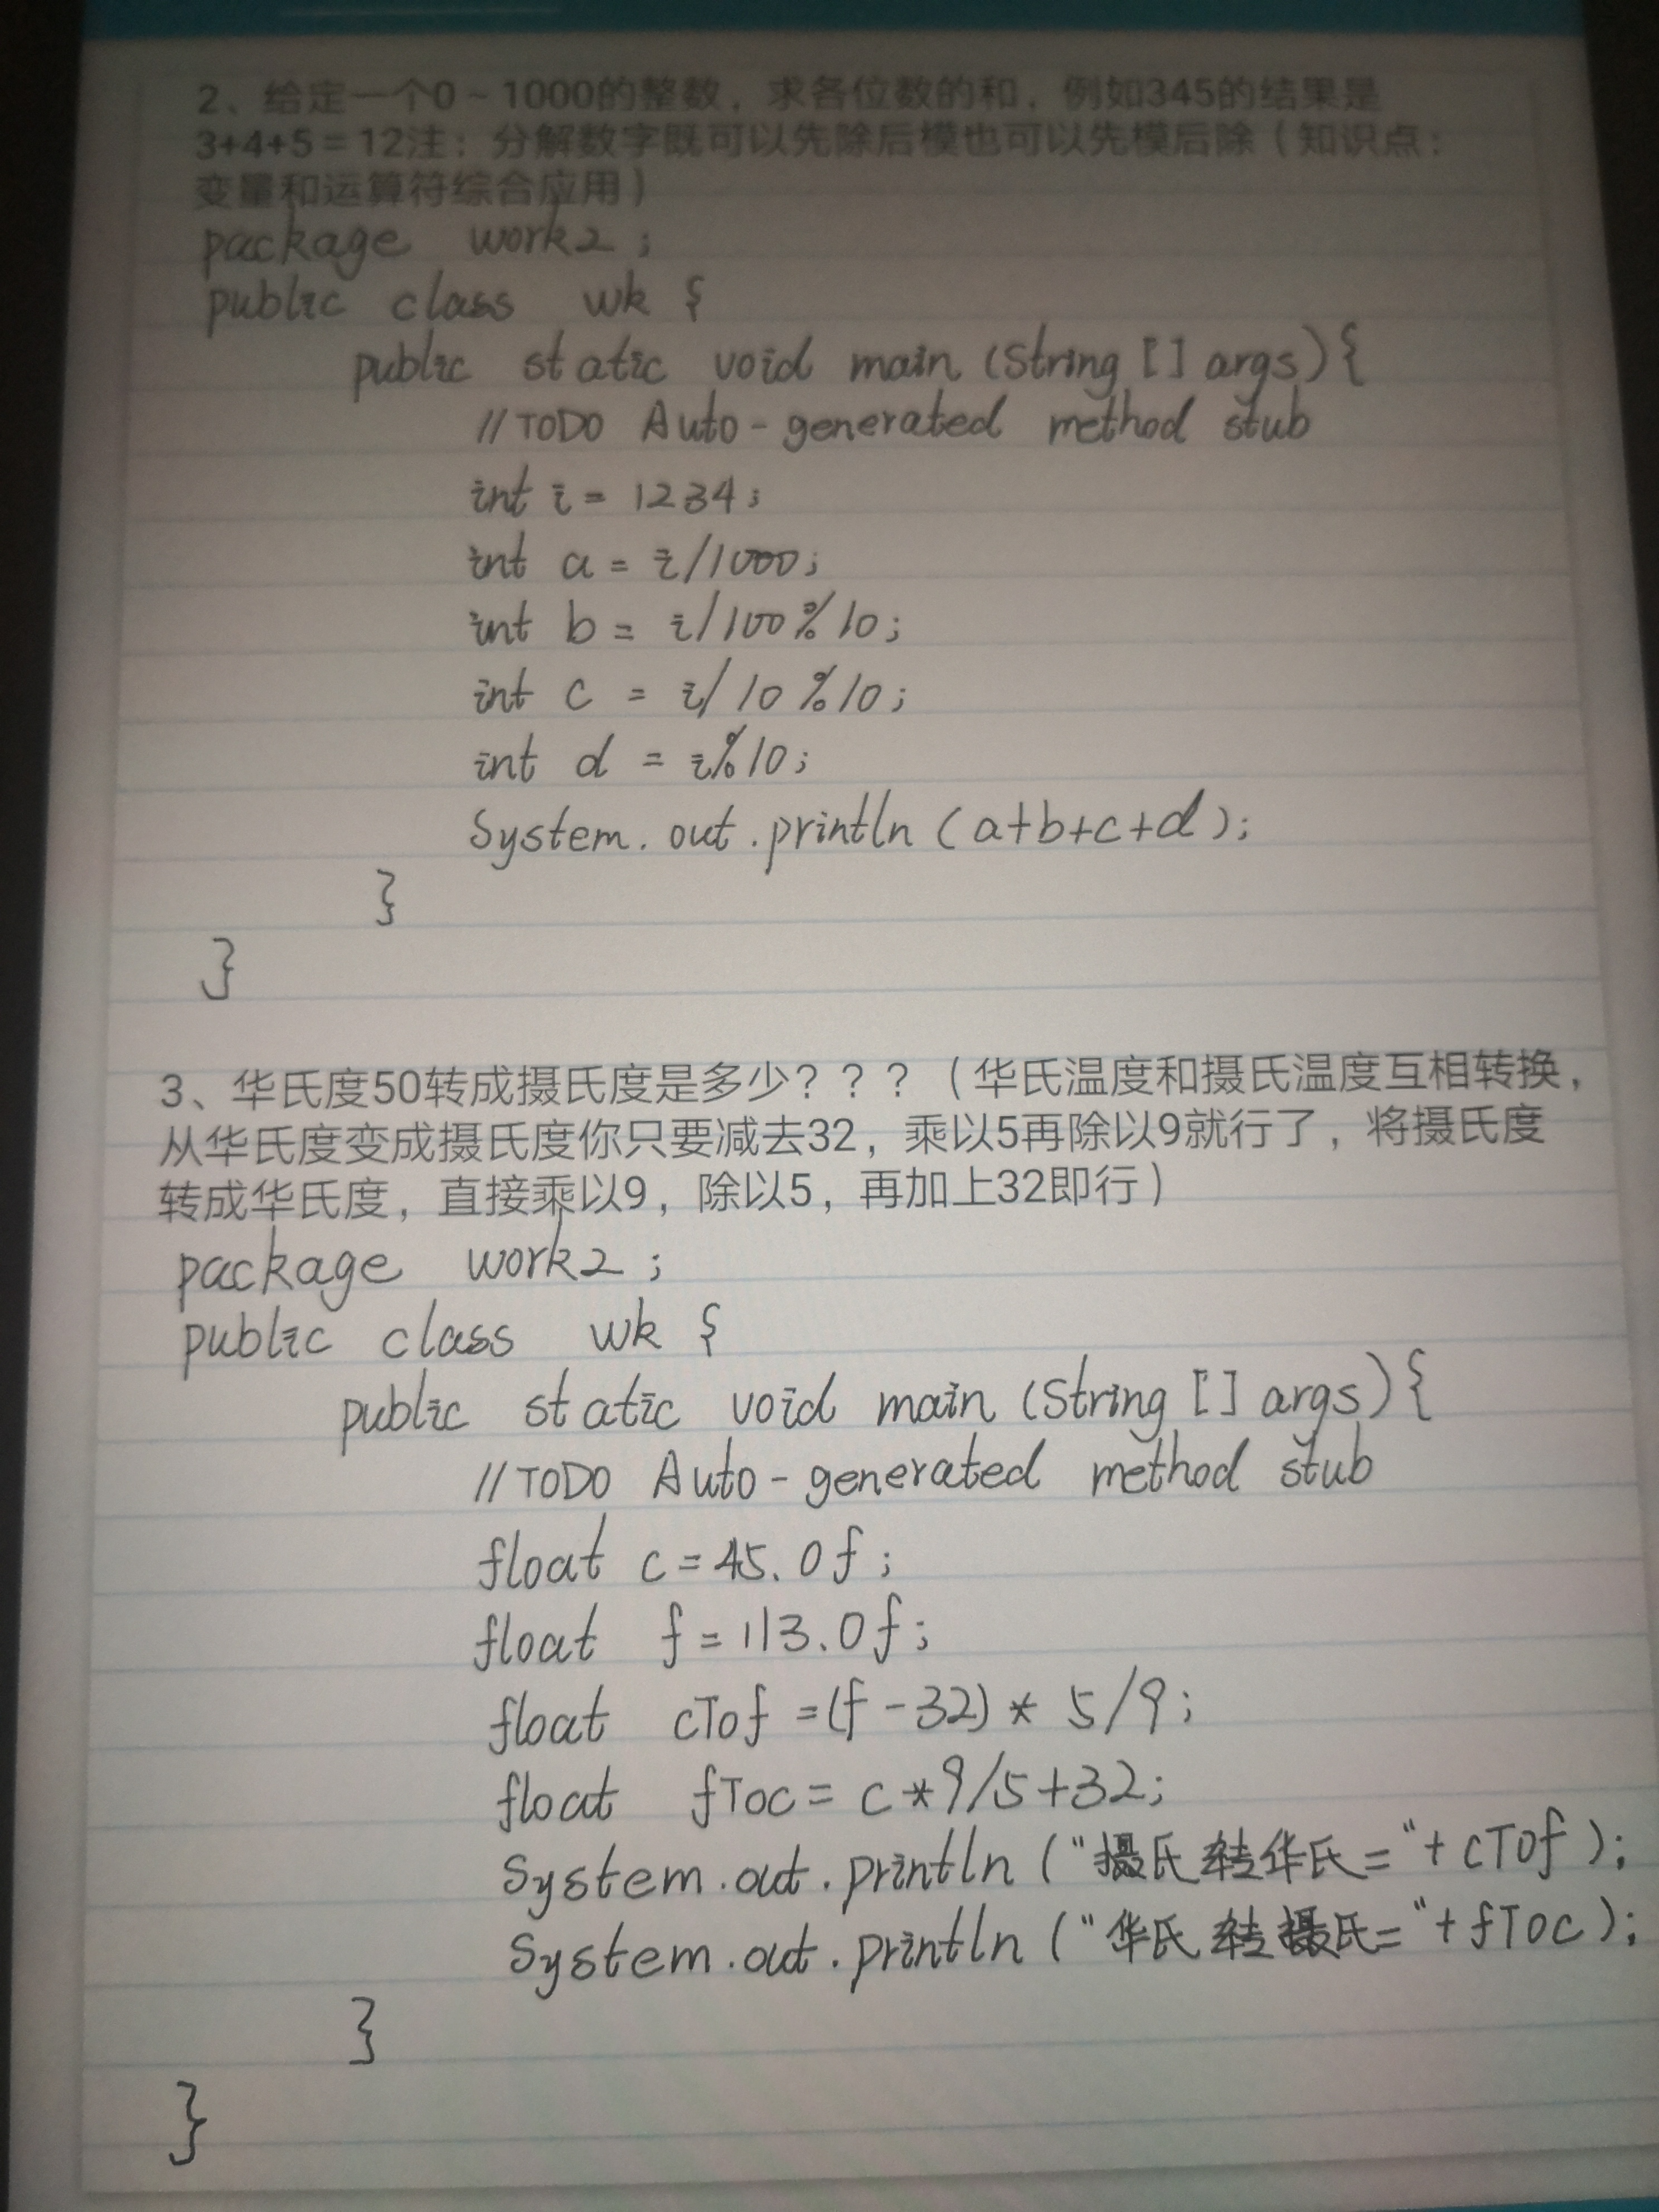 2、给定一个0～1000的整数，求各位数的和，例如345的结果是
3+4+5=12注：分解数字既可以先除后模也可以先模后除（知识点：
变量和运算符综合应用）
package work2;
public class wk {
public static void main (String [] args){
//TODO Auto-generated method stub
int i = 1234;
int a = i/1000;
int b = i/100%10;
int c = i/10%10;
int d = i%10;
System.out.println (a+b+c+d);
}
}
3、华氏度50转成摄氏度是多少？？？（华氏温度和摄氏温度互相转换，
从华氏度变成摄氏度你只要减去32，乘以5再除以9就行了，将摄氏度
转成华氏度，直接乘以9，除以5，再加上32即行）
package work2;
public class wk {
public static void main (String [] args){
//TODO Auto-generated method stub
float c=45.0f;
float f=113.0f;
float cTof =(f-32)* 5/9;
float fToc= c*9/5+32;
System.out.println ("摄氏转华氏="+cTof);
System.out.println ("华氏转摄氏="+fToc);
}
}